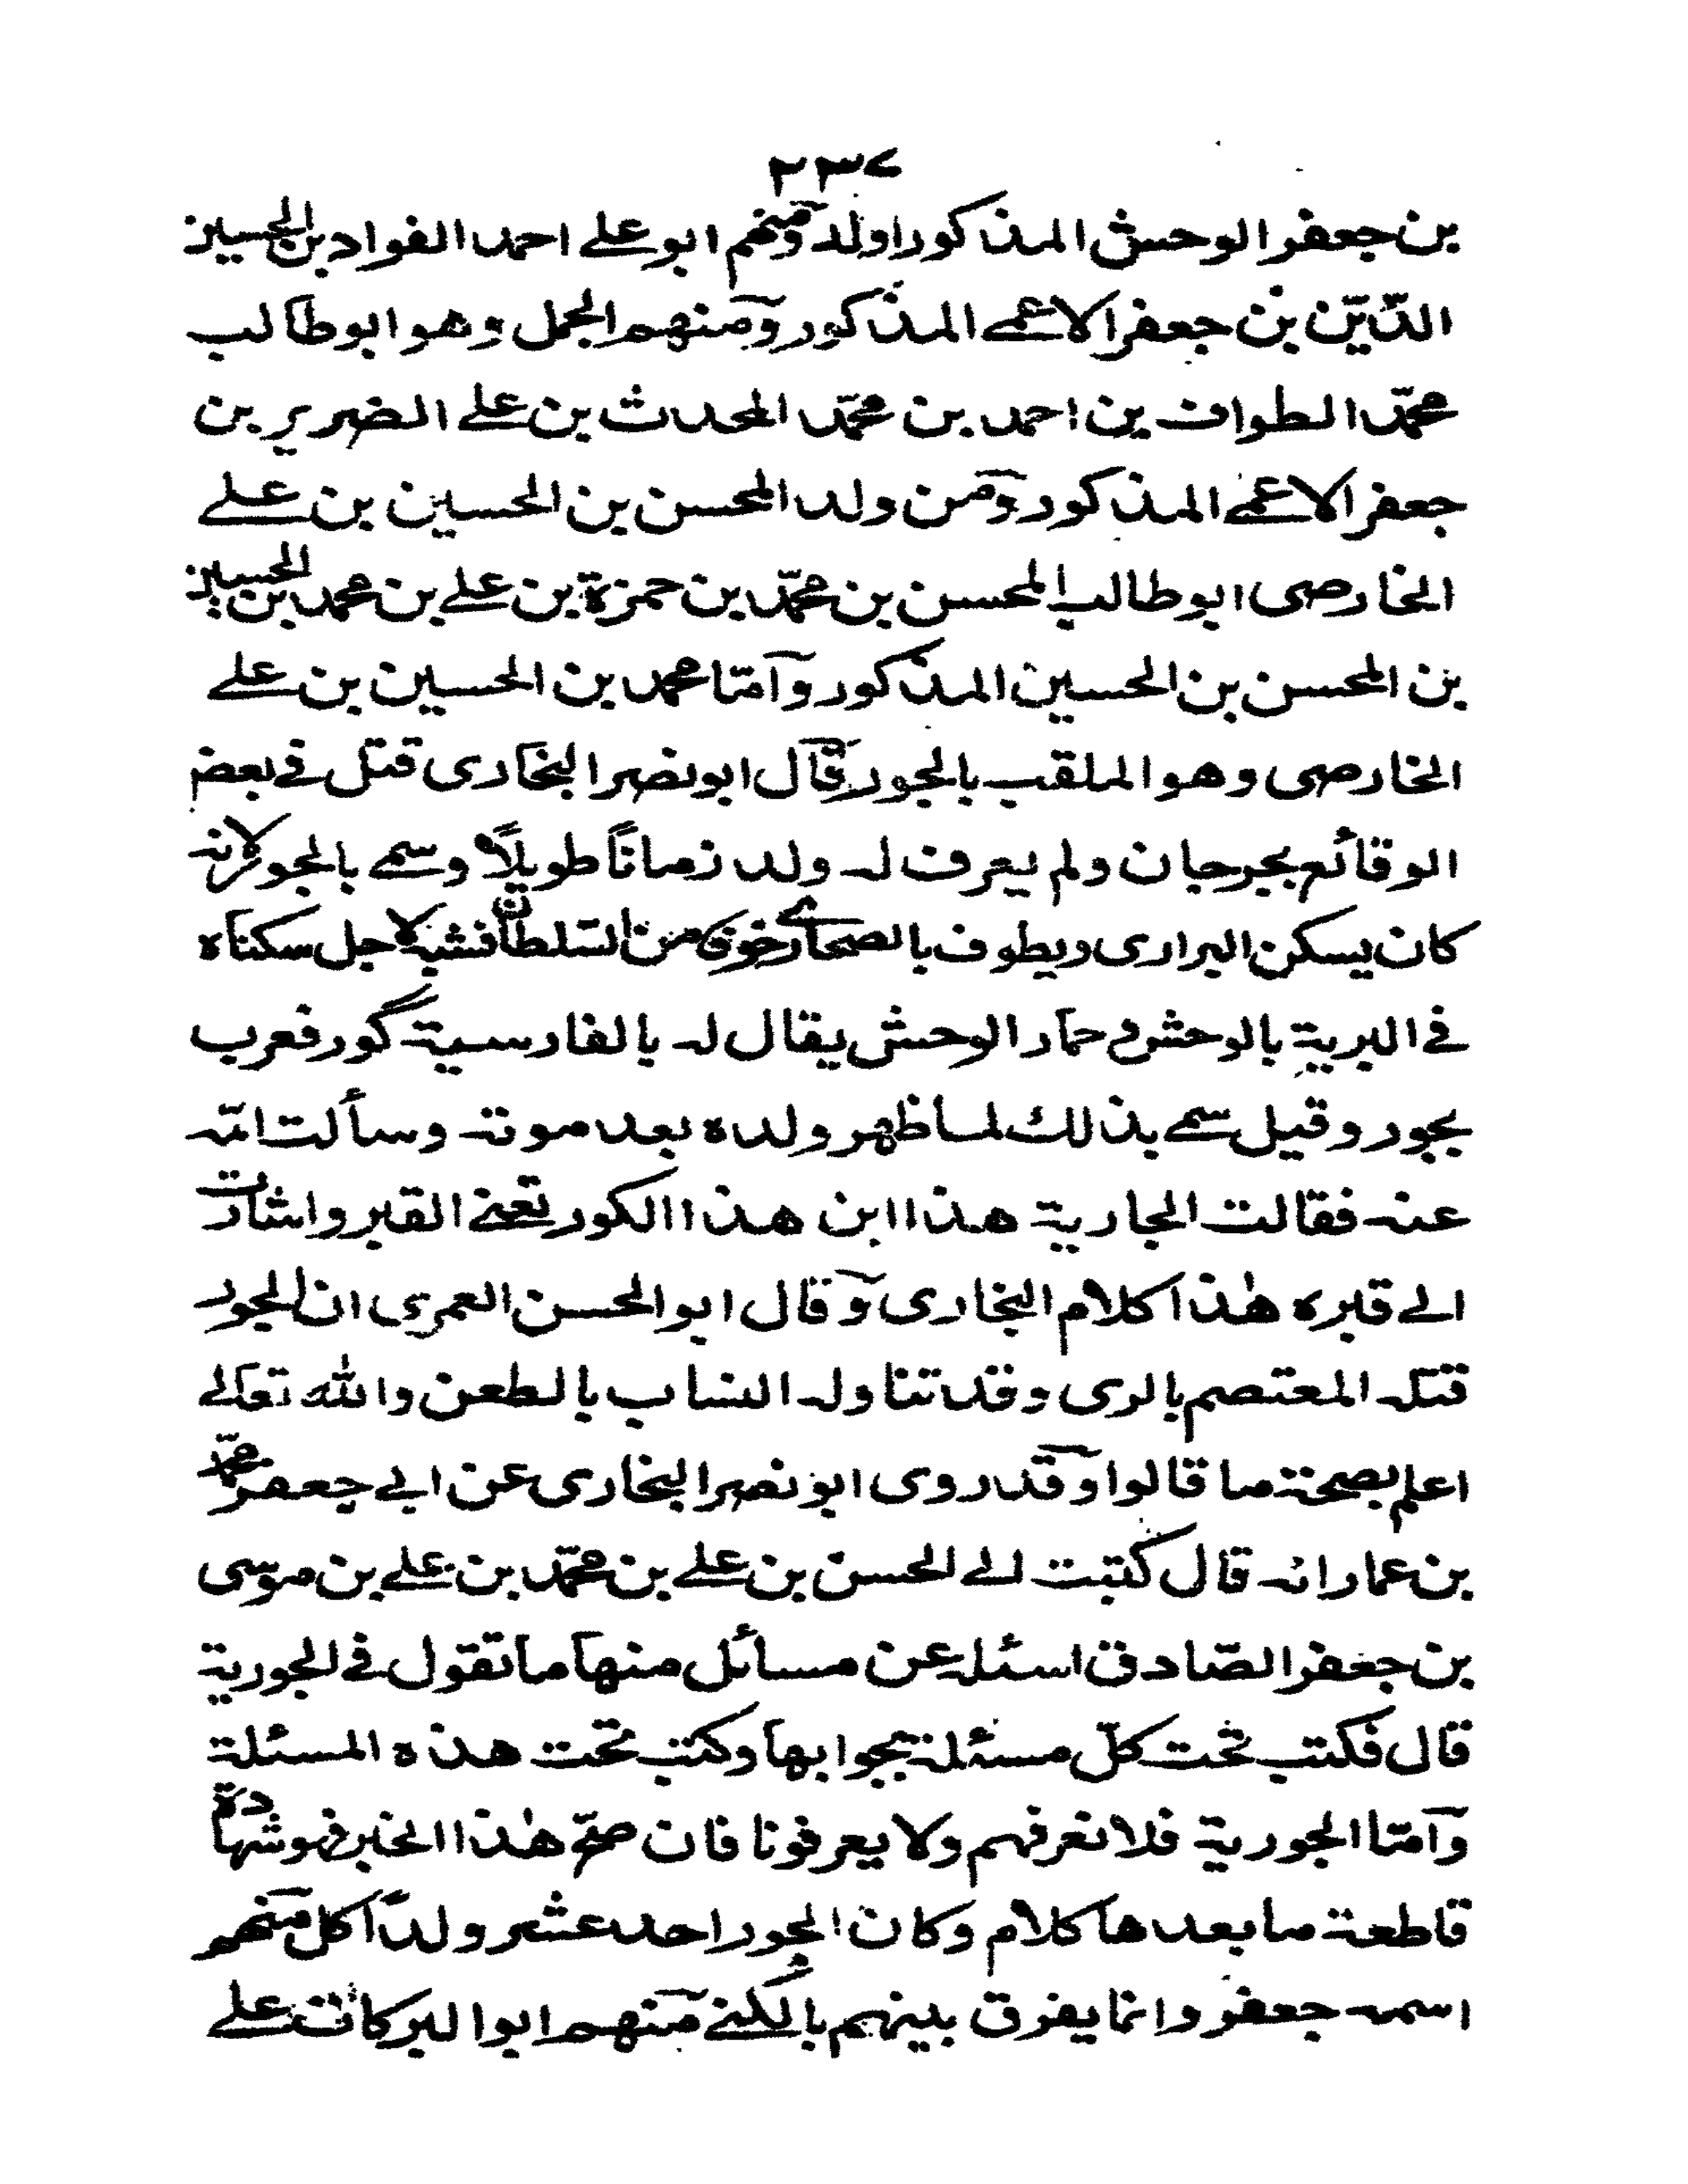 ٢٣٧
بن جعفر الوحش المذكور اولد ومنهم ابو علے احمد الفواد بن الحسين
الدّيّن بن جعفر الاعمے المذكور ومنهم المجمل وهو ابو طالب
محمّد الطواف بن احمد بن محمّد المحدث بن علے الضرير بن
جعفر الاعمے المذكور ومن ولد المحسن بن الحسين بن علے
الخارصى ابو طالب المحسن بن محمّد بن حمزة بن علے بن محمد بن الحسين
بن المحسن بن الحسين المذكور وامّا محمد بن الحسين بن علے
الخارصى وهو الملقب بالجور قال ابو نصر البخارى قتل فے بعض
الوقائع بجرجان ولم يعرف له ولد زماناً طويلاً وسمے بالجور لانه
كان يسكن البرارى ويطوف بالصحارے خوفا من السّلطان فشبه لاجل سكناه
فے البرية بالوحش و حمار الوحش يقال له بالفارسية گور فعرب
بجور وقيل سمے بذلك لما ظهر ولده بعد موته وسألت امّه
عنه فقالت الجارية هذا ابن هذا الكور تعنے القبر واشارت
الے قبره هذا كلام البخارى وقال ابو الحسن العمرى ان الجور
قتله المعتصم بالرى وقد تناوله النساب بالطعن والله تعالے
اعلم بصحة ما قالوا وقد روى ابو نصر البخارى عن ابے جعفر محمّد
بن عمار انه قال كتبت الے الحسن بن علے بن محمّد بن علے بن موسى
بن جعفر الصّادق اسئله عن مسائل منها ما تقول فے الجورية
قال فكتب تحت كلّ مسئلة بجوابها وكتب تحت هذه المسئلة
وامّا الجورية فلا نعرفهم ولا يعرفونا فان صحّ هذا الخبر فهو شهادة
قاطعة ما بعدها كلام وكان الجور احد عشر ولداً كل منهم
اسمه جعفر وانما يفرق بينهم بالكنے منهم ابو البركات علے